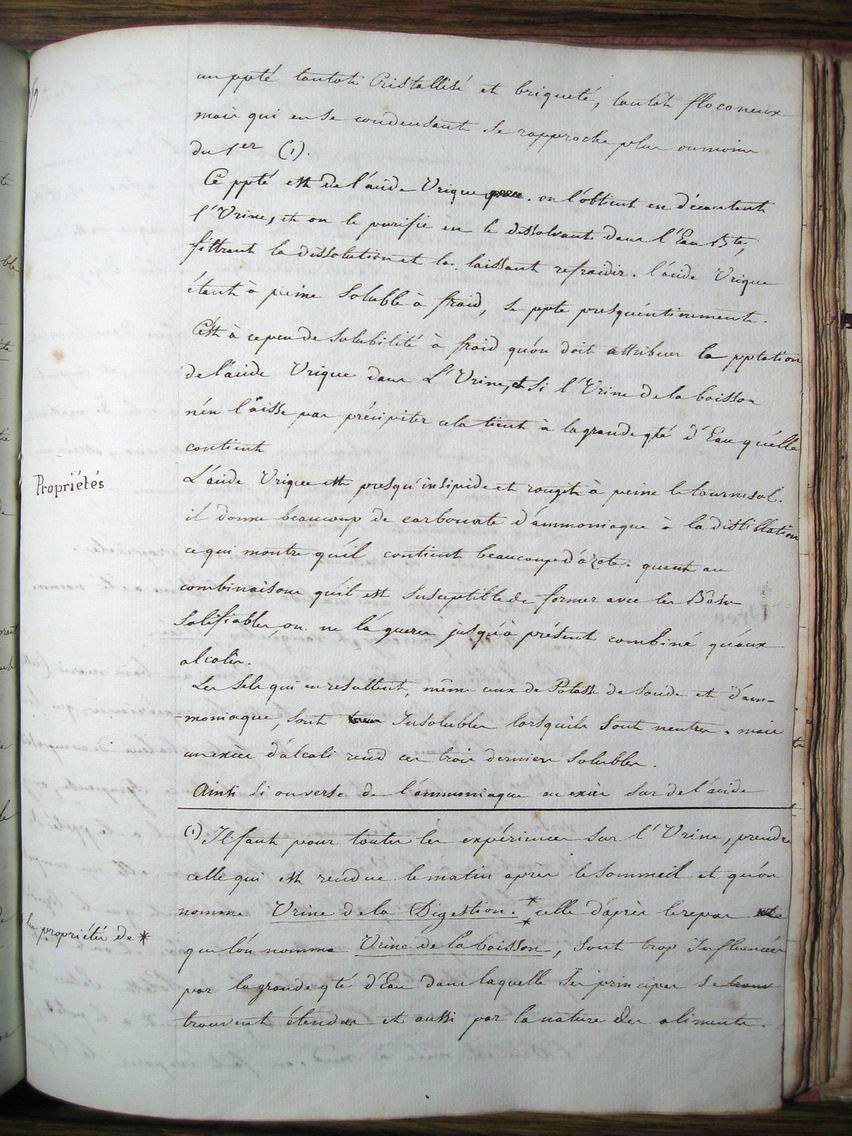 un ppté tantôt Cristallisé et briqueté, tantôt floconeux
mais qui en se condensant se rapproche plus ou moins
du 1er (1).
Ce ppté est de l'acide Urique on l'obtient en décantant
l'Urine, et on le purifie en le dissolvant dans l'Eau Bte,
filtrant la dissolution et la laissant refroidir. l'acide Urique
étant à peine Soluble à froid, se ppte presqu'entierement.
C'est à ce peu de Solubilité à froid qu'on doit attribuer la pptation
de l'acide Urique dans L'Urine, et Si l'Urine de la boisson
n'en laisse pas précipiter cela tient à la grande qté d'Eau qu'elle
contient
Propriétés
L'acide Urique est presqu'insipide et rougit à peine le tournesol.
il donne beaucoup de carbonate d'ammoniaque à la distillation
ce qui montre qu'il contient beaucoup d'azote. quant au
combinaisons qu'il est Susceptible de former avec les Bases
Salifiables, on ne l'a gueres jusqu'à présent combiné qu'aux
alcalis.
Les Sels qui en resultent, même ceux de Potasse de Soude et d'am-
-moniaque, sont Insolubles lorsquils Sont neutres. mais
un excès d'alcali rend ces trois derniers Solubles.
Ainsi Si on verse de l'ammoniaque en excès Sur de l'acide
(1) Il faut pour toutes les expériences Sur l'Urine, prendre
celle qui est rendue le matin après le Sommeil et qu'on
nomme Urine de la Digestion. * celle d'après le repas
les propriétés de *
que l'on nomme Urine de la boisson, Sont trop Influencées
par la grande qté d'Eau dans laquelle Ses principes se
trouvent étendus et aussi par la nature des aliments.